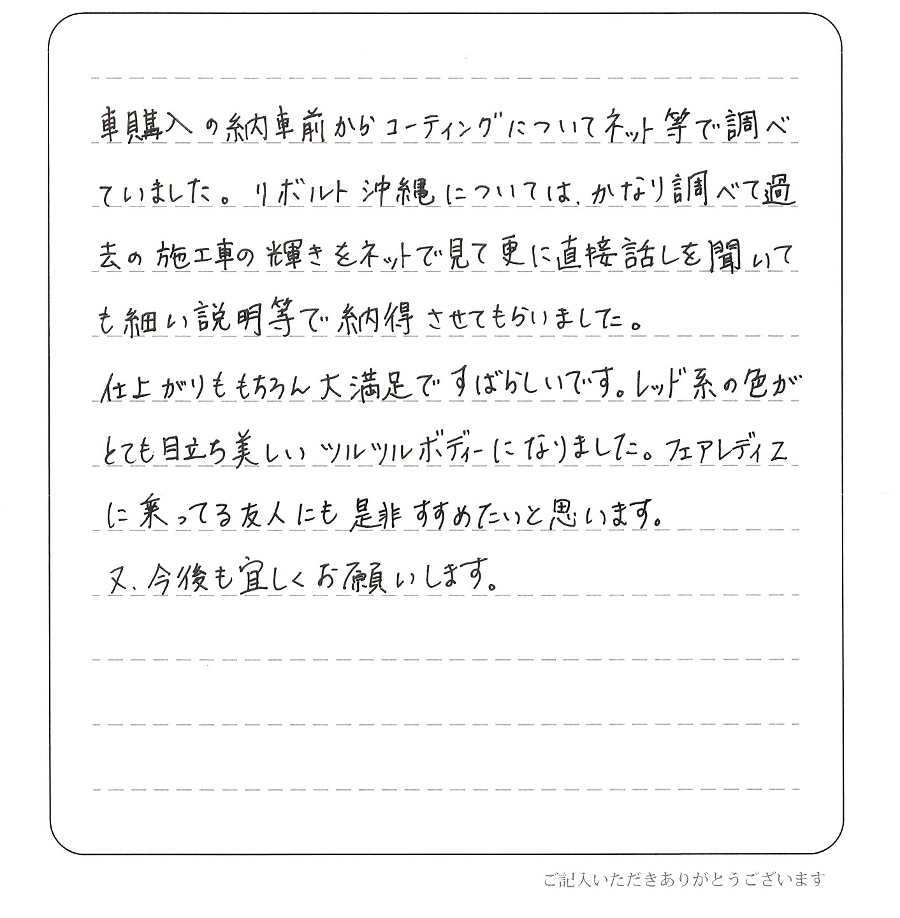 車購入の納車前からコーティングについてネット等で調べ
ていました。リボルト沖縄については、かなり調べて過
去の施工車の輝きをネットで見て更に直接話しを聞いて
も細い説明等で納得させてもらいました。
仕上がりももちろん大満足ですばらしいです。レッド系の色が
とても目立ち美しいツルツルボディーになりました。フェアレディZ
に乗ってる友人にも是非すすめたいと思います。
又、今後も宜しくお願いします。
ご記入いただきありがとうございます